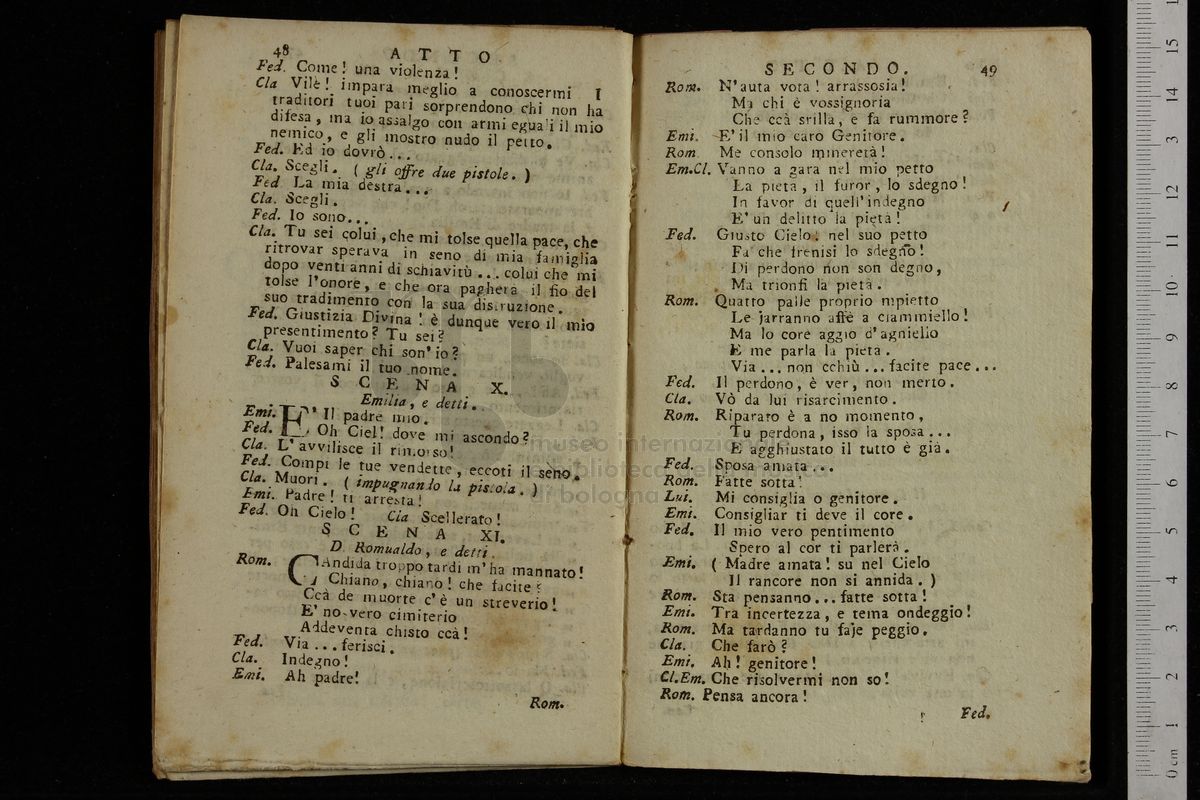 48 ATTO
Fed. Come! una violenza!
Cla Vile! impara meglio a conoscermi I
traditori tuoi pari sorprendono chi non ha
difesa, ma io assalgo con armi eguali il mio
nemico, e gli mostro nudo il petto.
Fed. Ed io dovrò...
Cla. Scegli. (gli offre due pistole.)
Fed La mia destra...
Cla. Scegli.
Fed. Io sono...
Cla. Tu sei colui, che mi tolse quella pace, che
ritrovar sperava in seno di mia famiglia
dopo venti anni di schiavitù... colui che mi
tolse l'onore, e che ora pagherà il fio del
suo tradimento con la sua distruzione.
Fed. Giustizia Divina! è dunque vero il mio
presentimento? Tu sei?
Cla. Vuoi saper chi son' io?
Fed. Palesami il tuo nome.
SCENA X.
Emilia, e detti.
Emi. E' Il padre mio.
Fed. Oh Ciel! dove mi ascondo?
Cla. L'avvilisce il rimorso!
Fed. Compi le tue vendette, eccoti il seno.
Cla. Muori. (impugnando la pistola.)
Emi. Padre! ti arresta!
Fed. Oh Cielo! Cla Scellerato!
SCENA XI.
D. Romualdo, e detti.
Rom. CAndida troppo tardi m'ha mannato!
Chiano, chiano! che facite?
Ccà de muorte c'è un streverio!
E' no vero cimiterio
Addeventa chisto ccà!
Fed. Via... ferisci.
Cla. Indegno!
Emi. Ah padre!
Rom.
SECONDO. 49
Rom. N'auta vota! arrassosia!
Ma chi è vossignoria
Che ccà strilla, e fa rummore?
Emi. E' il mio caro Genitore.
Rom Me consolo mmeretà!
Em.Cl. Vanno a gara nel mio petto
La pietà, il furor, lo sdegno!
In favor di quell'indegno
E' un delitto la pietà!
Fed. Giusto Cielo: nel suo petto
Fa che frenisi lo sdegno!
Di perdono non son degno,
Ma trionfi la pietà.
Rom. Quatto palle proprio mpietto
Le jarranno affè a ciammiello!
Ma lo core aggio d'agniello
E me parla la pietà.
Via... non cchiù... facite pace...
Fed. Il perdono, è ver, non merto.
Cla. Vò da lui risarcimento.
Rom. Riparato è a no momento,
Tu perdona, isso la sposa...
E agghiustato il tutto è già.
Fed. Sposa amata...
Rom. Fatte sotta!
Lui. Mi consiglia o genitore.
Emi. Consigliar ti deve il core.
Fed. Il mio vero pentimento
Spero al cor ti parlerà.
Emi. (Madre amata! su nel Cielo
Il rancore non si annida.)
Rom. Sta pensanno... fatte sotta!
Emi. Tra incertezza, e tema ondeggio!
Rom. Ma tardanno tu faje peggio.
Cla. Che farò?
Emi. Ah! genitore!
Cl.Em. Che risolvermi non so!
Rom. Pensa ancora!
Fed.
museo internazionale
e biblioteca della musica
di bologna
15
14
13
12
11
10
9
8
7
6
5
4
3
2
1
0 cm